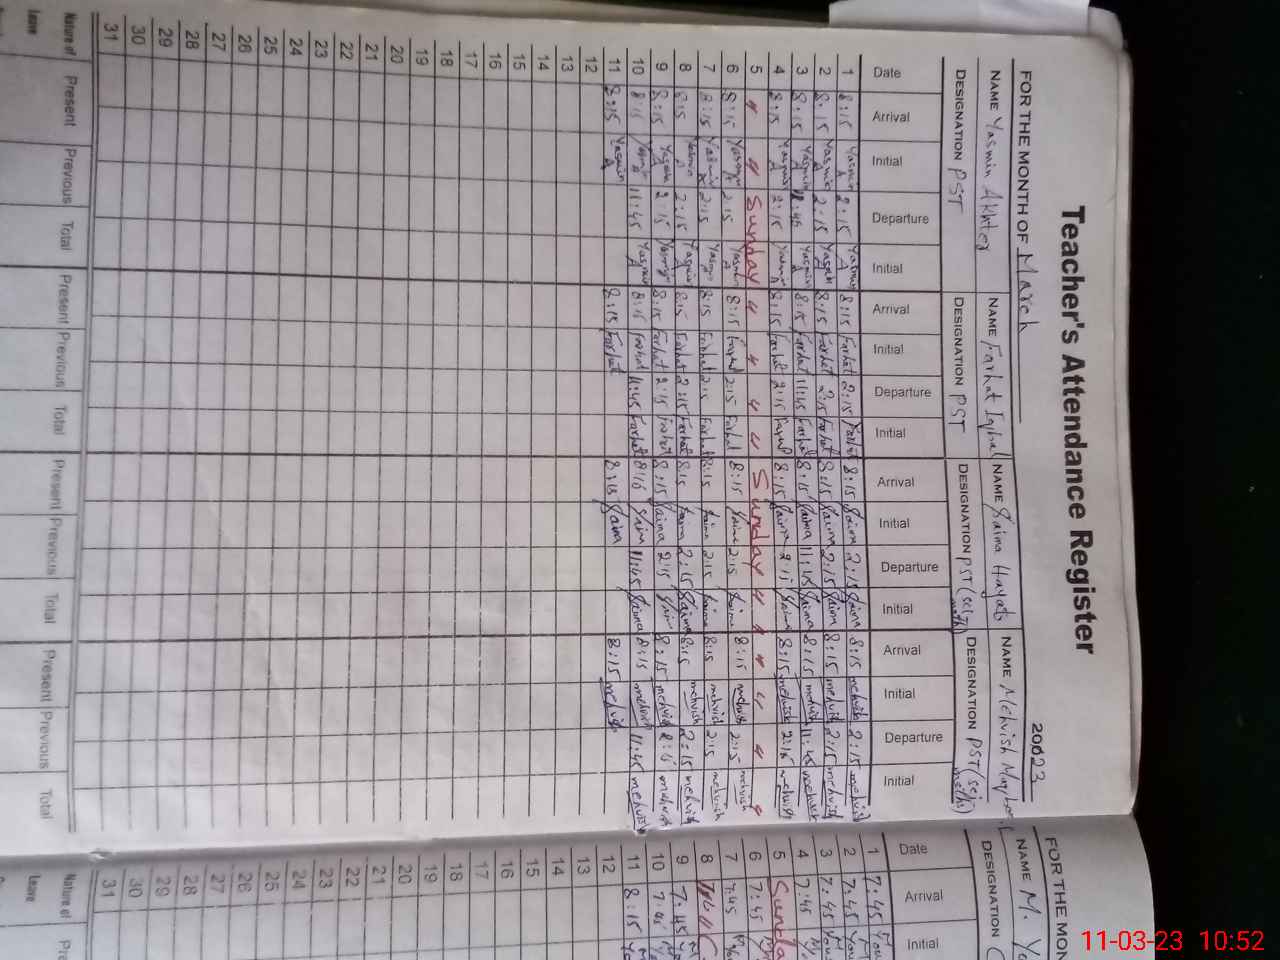 Teacher's Attendance Register
FOR THE MONTH OF March 20023
NAME Yasmin Akhter NAME Farhat Iqbal NAME Saima Hayat NAME Mehvish
DESIGNATION PST DESIGNATION PST DESIGNATION PST (sci math) DESIGNATION PST (sci maths)
Date Arrival Initial Departure Initial Arrival Initial Departure Initial Arrival Initial Departure Initial Arrival Initial Departure Initial
1 8:15 Yasmin A 2:15 Yasmin A 8:15 Farhat 2:15 Farhat 8:15 Saima 2:15 Saima 8:15 mehvish 2:15 mehvish
2 8:15 Yasmin A 2:15 Yasmin A 8:15 Farhat 2:15 Farhat 8:15 Saima 2:15 Saima 8:15 mehvish 2:15 mehvish
3 8:15 Yasmin A 11:45 Yasmin A 8:15 Farhat 11:45 Farhat 8:15 Saima 11:45 Saima 8:15 mehvish 11:45 mehvish
4 8:15 Yasmin A 2:15 Yasmin A 8:15 Farhat 2:15 Farhat 8:15 Saima 2:15 Saima 8:15 mehvish 2:15 mehvish
5 " " Sunday " " " " Sunday " " " " " "
6 8:15 Yasmin A 2:15 Yasmin A 8:15 Farhat 2:15 Farhat 8:15 Saima 2:15 Saima 8:15 mehvish 2:15 mehvish
7 8:15 Yasmin 2:15 Yasmin 8:15 Farhat 2:15 Farhat 8:15 Saima 2:15 Saima 8:15 mehvish 2:15 mehvish
8 8:15 Yasmin A 2:15 Yasmin A 8:15 Farhat 2:15 Farhat 8:15 Saima 2:15 Saima 8:15 mehvish 2:15 mehvish
9 8:15 Yasmin A 2:15 Yasmin A 8:15 Farhat 2:15 Farhat 8:15 Saima 2:15 Saima 8:15 mehvish mehvish
10 8:15 Yasmin A 11:45 Yasmin A 8:15 Farhat 11:45 Farhat 8:15 Saima 11:45 Saima 8:15 mehvish 11:45 mehvish
11 8:15 Yasmin A 8:15 Farhat 8:15 Saima 8:15 mehvish
12
13
14
15
16
17
18
19
20
21
22
23
24
25
26
27
28
29
30
31
Nature of Leave Present Previous Total Present Previous Total Present Previous Total Present Previous Total
FOR THE MON
NAME M.
DESIGNATION
Date Arrival Initial
1 7:45
2 7:45
3 7:45
4 7:45
5 Sunda
6 7:45
7 7:45
8
9 7:45
10 7:45
11 8:15
12
13
14
15
16
17
18
19
20
21
22
23
24
25
26
27
28
29
30
31
Nature of Leave
11-03-23 10:52